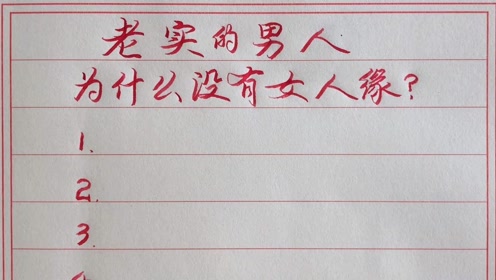 老实的男人
为什么没有女人缘?
1.
2.
3.